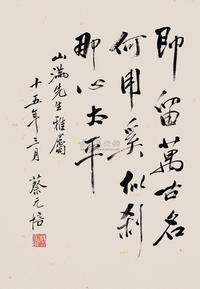 即留萬古名
何用奚似刹
那心太平
山滿先生雅屬
十五年三月 蔡元培